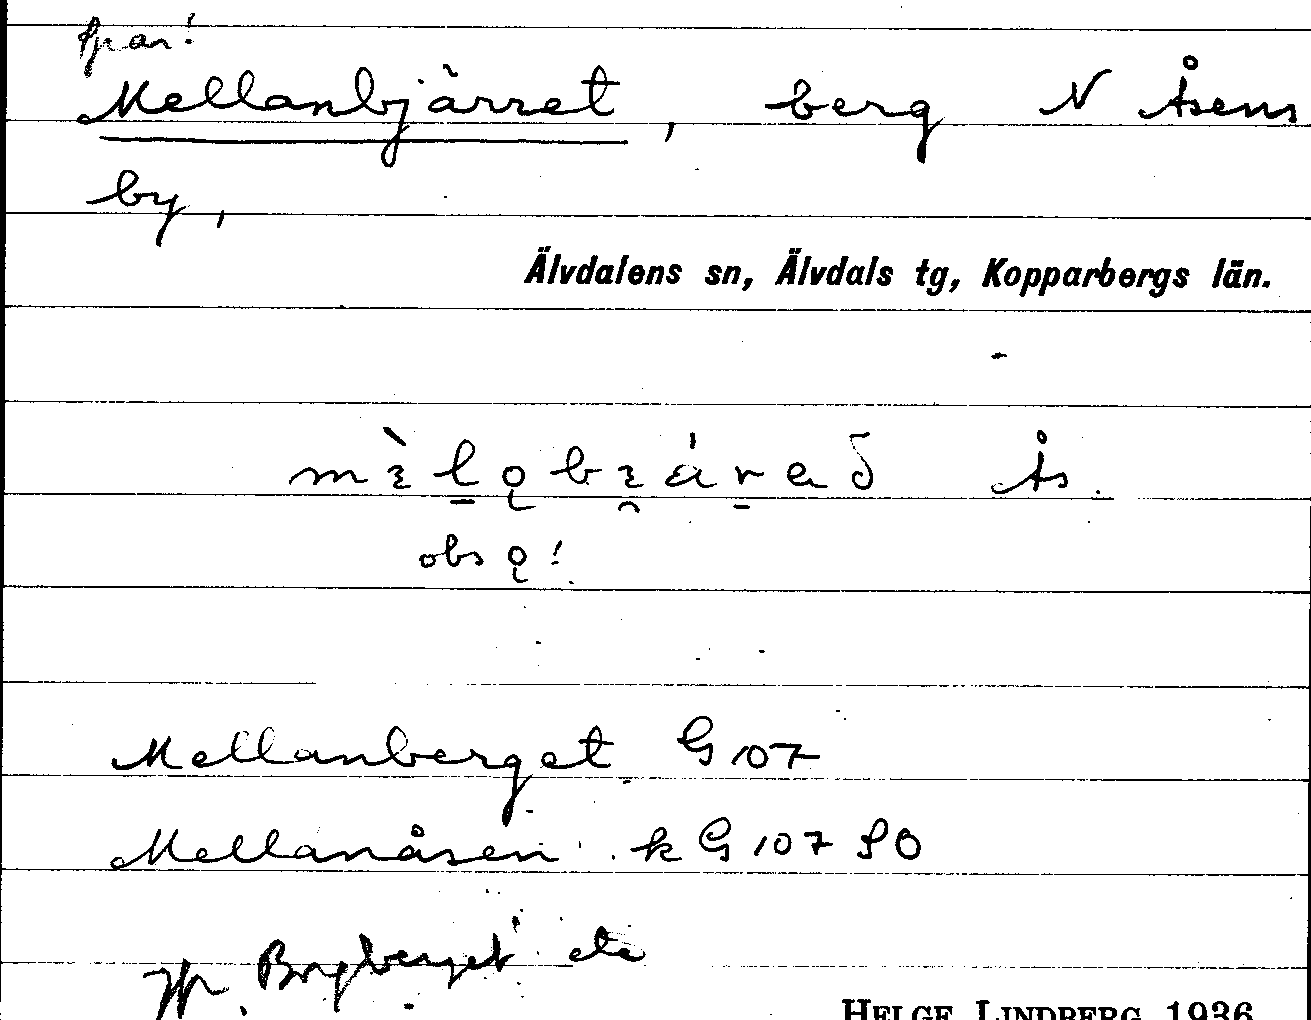 Spar!
Mellanbjärret, berg N Åsens
by,
Älvdalens sn, Älvdals tg, Kopparbergs län.
Ås.
obs ǫ!
Mellanberget G 107
Mellanåsen k G 107 SO
Jfr etc
HELGE LINDBERG 1936